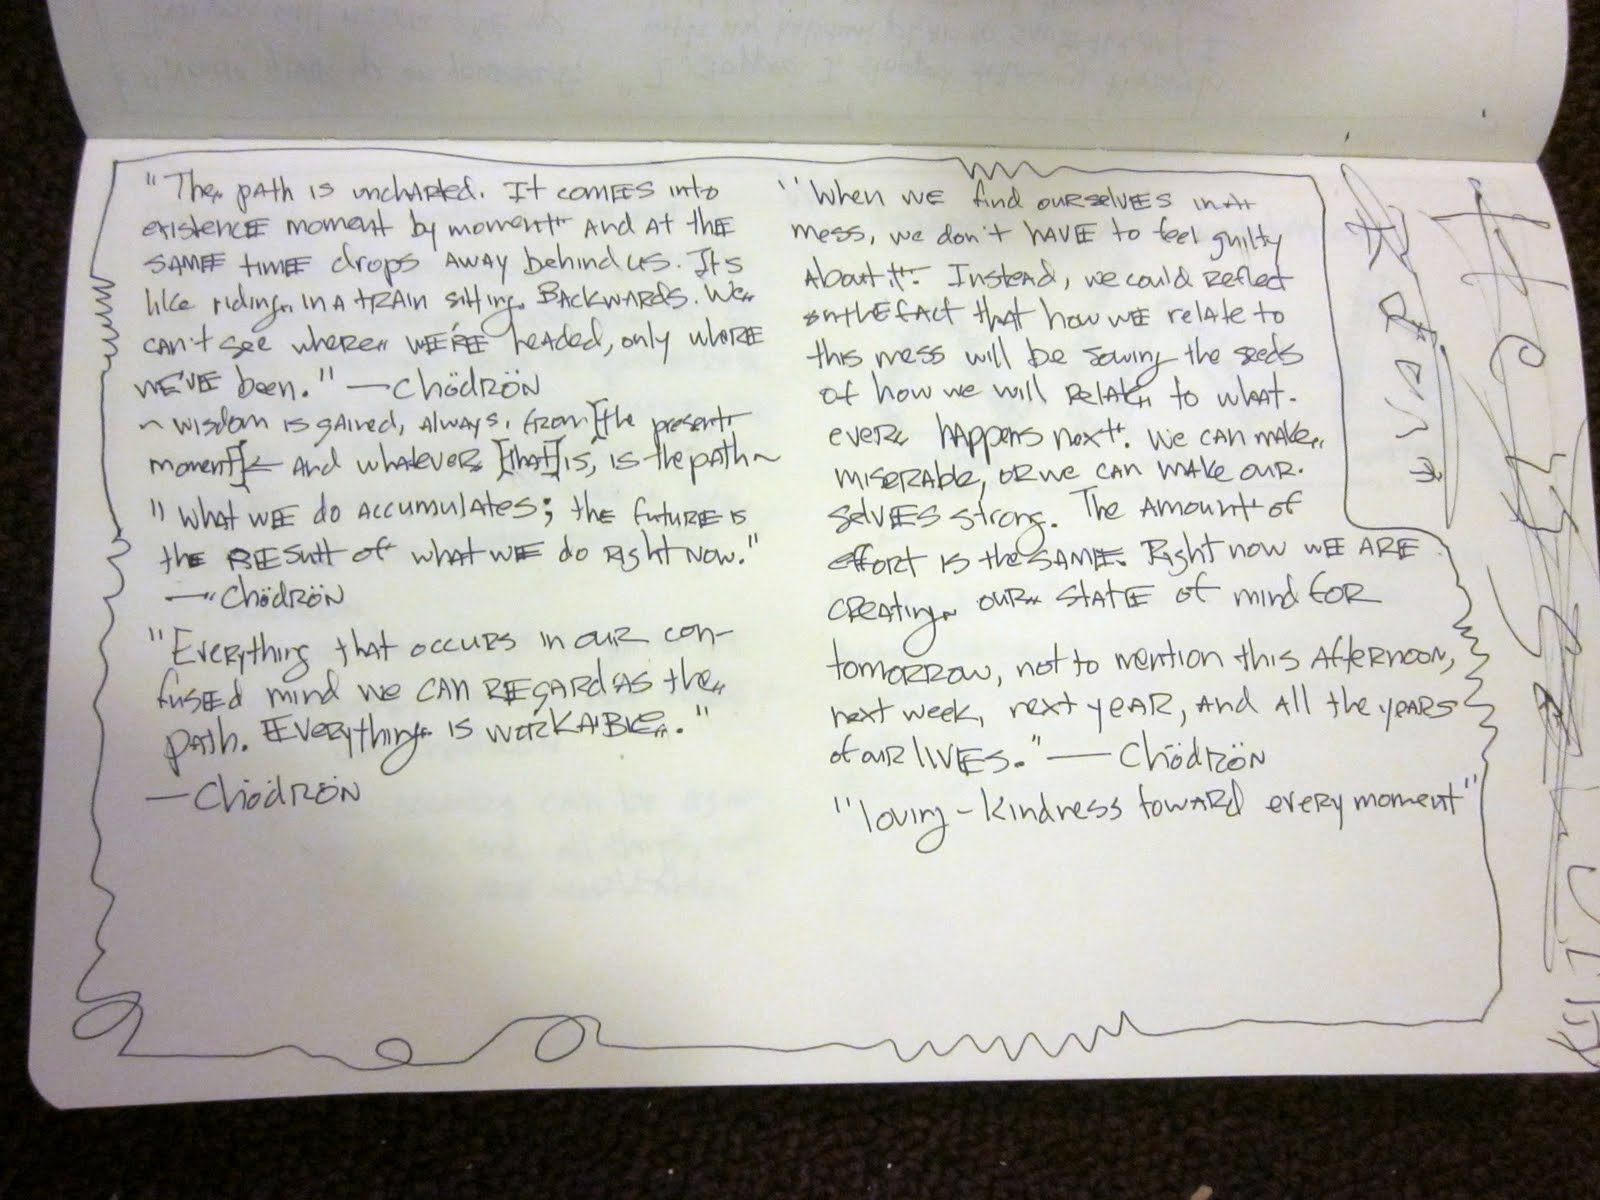 "The path is uncharted. It comes into
existence moment by moment and at the
same time drops away behind us. Its
like riding in a train sitting backwards. We
can't see where we're headed, only where
we've been." — Chödrön
~ wisdom is gained, always, from [the present
moment] ← and whatever [that] is, is the path ~
"What we do accumulates; the future is
the result of what we do right now."
— Chödrön
"Everything that occurs in our con-
fused mind we can regard as the
path. Everything is workable."
— Chödrön
"When we find ourselves in a
mess, we don't have to feel guilty
about it. Instead, we could reflect
on the fact that how we relate to
this mess will be sowing the seeds
of how we will relate to what-
ever happens next. We can make
miserable, or we can make our-
selves strong. The amount of
effort is the same. Right now we are
creating our state of mind for
tomorrow, not to mention this afternoon,
next week, next year, and all the years
of our lives." — Chödrön
"loving-kindness toward every moment"